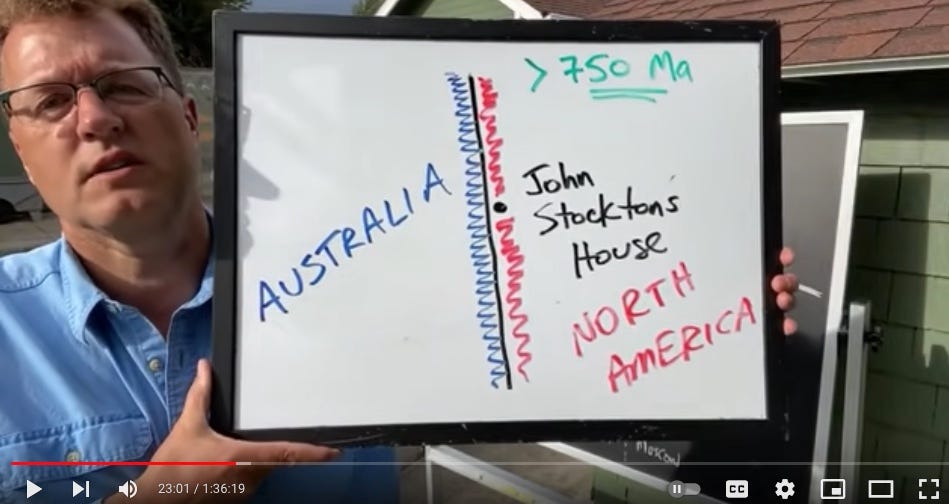 > 750 Ma
AUSTRALIA
John
Stocktons
House
NORTH
AMERICA
Moscow
23:01 / 1:36:19
CC